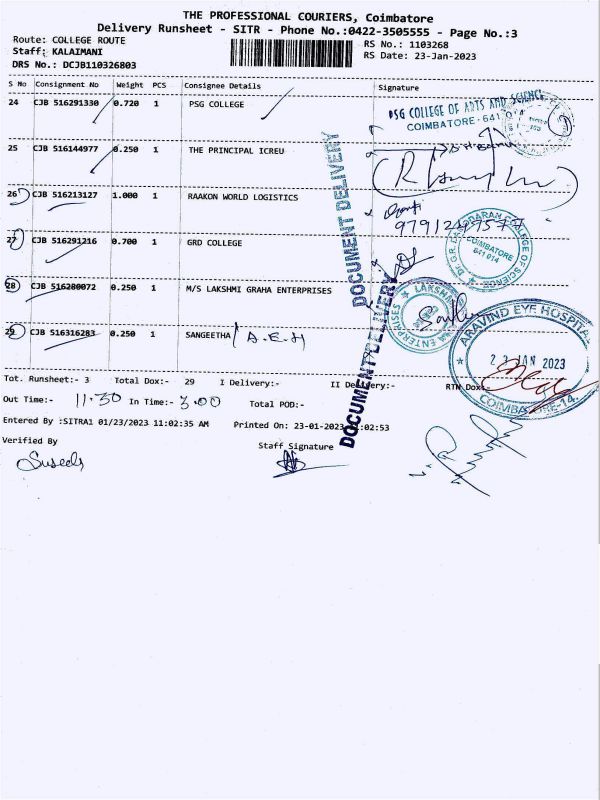 THE PROFESSIONAL COURIERS, Coimbatore
Delivery Runsheet - SITR - Phone No.:0422-3505555 - Page No.:3
Route: COLLEGE ROUTE
RS No.: 1103268
Staff: KALAIMANI
RS Date: 23-Jan-2023
DRS No.: DCJB110326803
S No Consignment No Weight PCS Consignee Details Signature
24 CJB 516291330 0.720 1 PSG COLLEGE
PSG COLLEGE OF ARTS AND SCIENCE
COIMBATORE - 641 014
25 CJB 516144977 0.250 1 THE PRINCIPAL ICREU
26 CJB 516213127 1.000 1 RAAKON WORLD LOGISTICS
27 CJB 516291216 0.700 1 GRD COLLEGE
COIMBATORE
641 014
28 CJB 516280072 0.250 1 M/S LAKSHMI GRAHA ENTERPRISES
29 CJB 516316283 0.250 1 SANGEETHA / A.E.H
DOCUMENT DELIVERY
DOCUMENT DELIVERY
ARAVIND EYE HOSPITAL
23 JAN 2023
COIMBATORE-14.
Tot. Runsheet:- 3 Total Dox:- 29 I Delivery:- II Delivery:- RTN Dox:-
Out Time:- 11.30 In Time:- 3.00 Total POD:-
Entered By :SITRA1 01/23/2023 11:02:35 AM Printed On: 23-01-2023 11:02:53
Verified By
Staff Signature